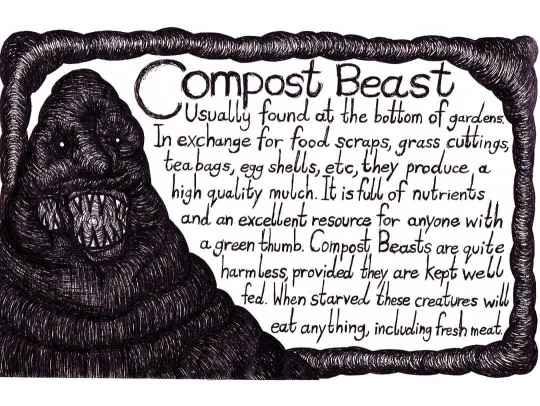 Compost Beast
Usually found at the bottom of gardens.
In exchange for food scraps, grass cuttings,
teabags, egg shells, etc, they produce a
high quality mulch. It is full of nutrients
and an excellent resource for anyone with
a green thumb. Compost Beasts are quite
harmless, provided they are kept well
fed. When starved these creatures will
eat anything, including fresh meat.